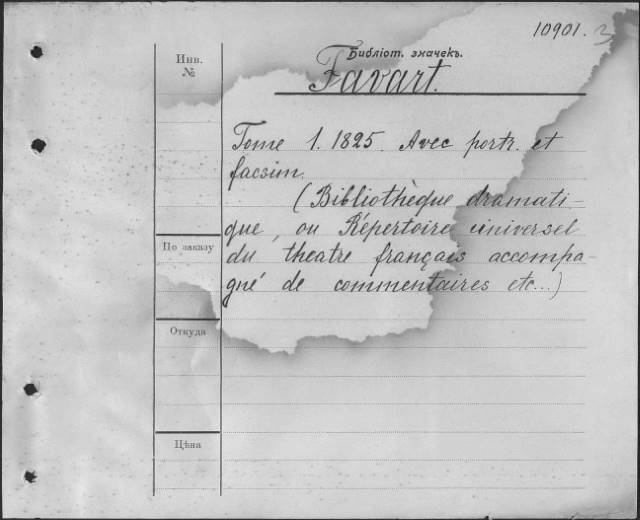 10901.3
Инв.
№
Библiот. значекъ.
Favart.
Tome 1. 1825. Avec portr. et
facsim.
(Bibliothèque dramati-
que, ou Répertoire universel
du theatre français accompa-
gné de commentaires etc...)
По заказу
Откуда
Цѣна